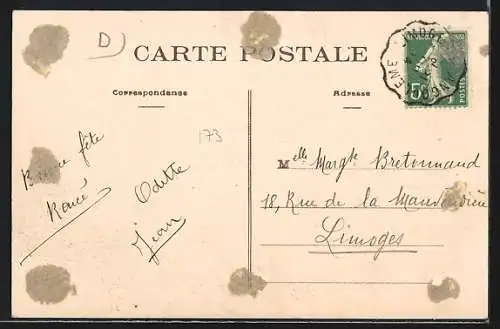 D
CARTE POSTALE
Correspondance
Adresse
173
Bonne fête
Odette
Jean
Melle Margte Bretonnaud
18, Rue de la
Limoges
5
POSTES